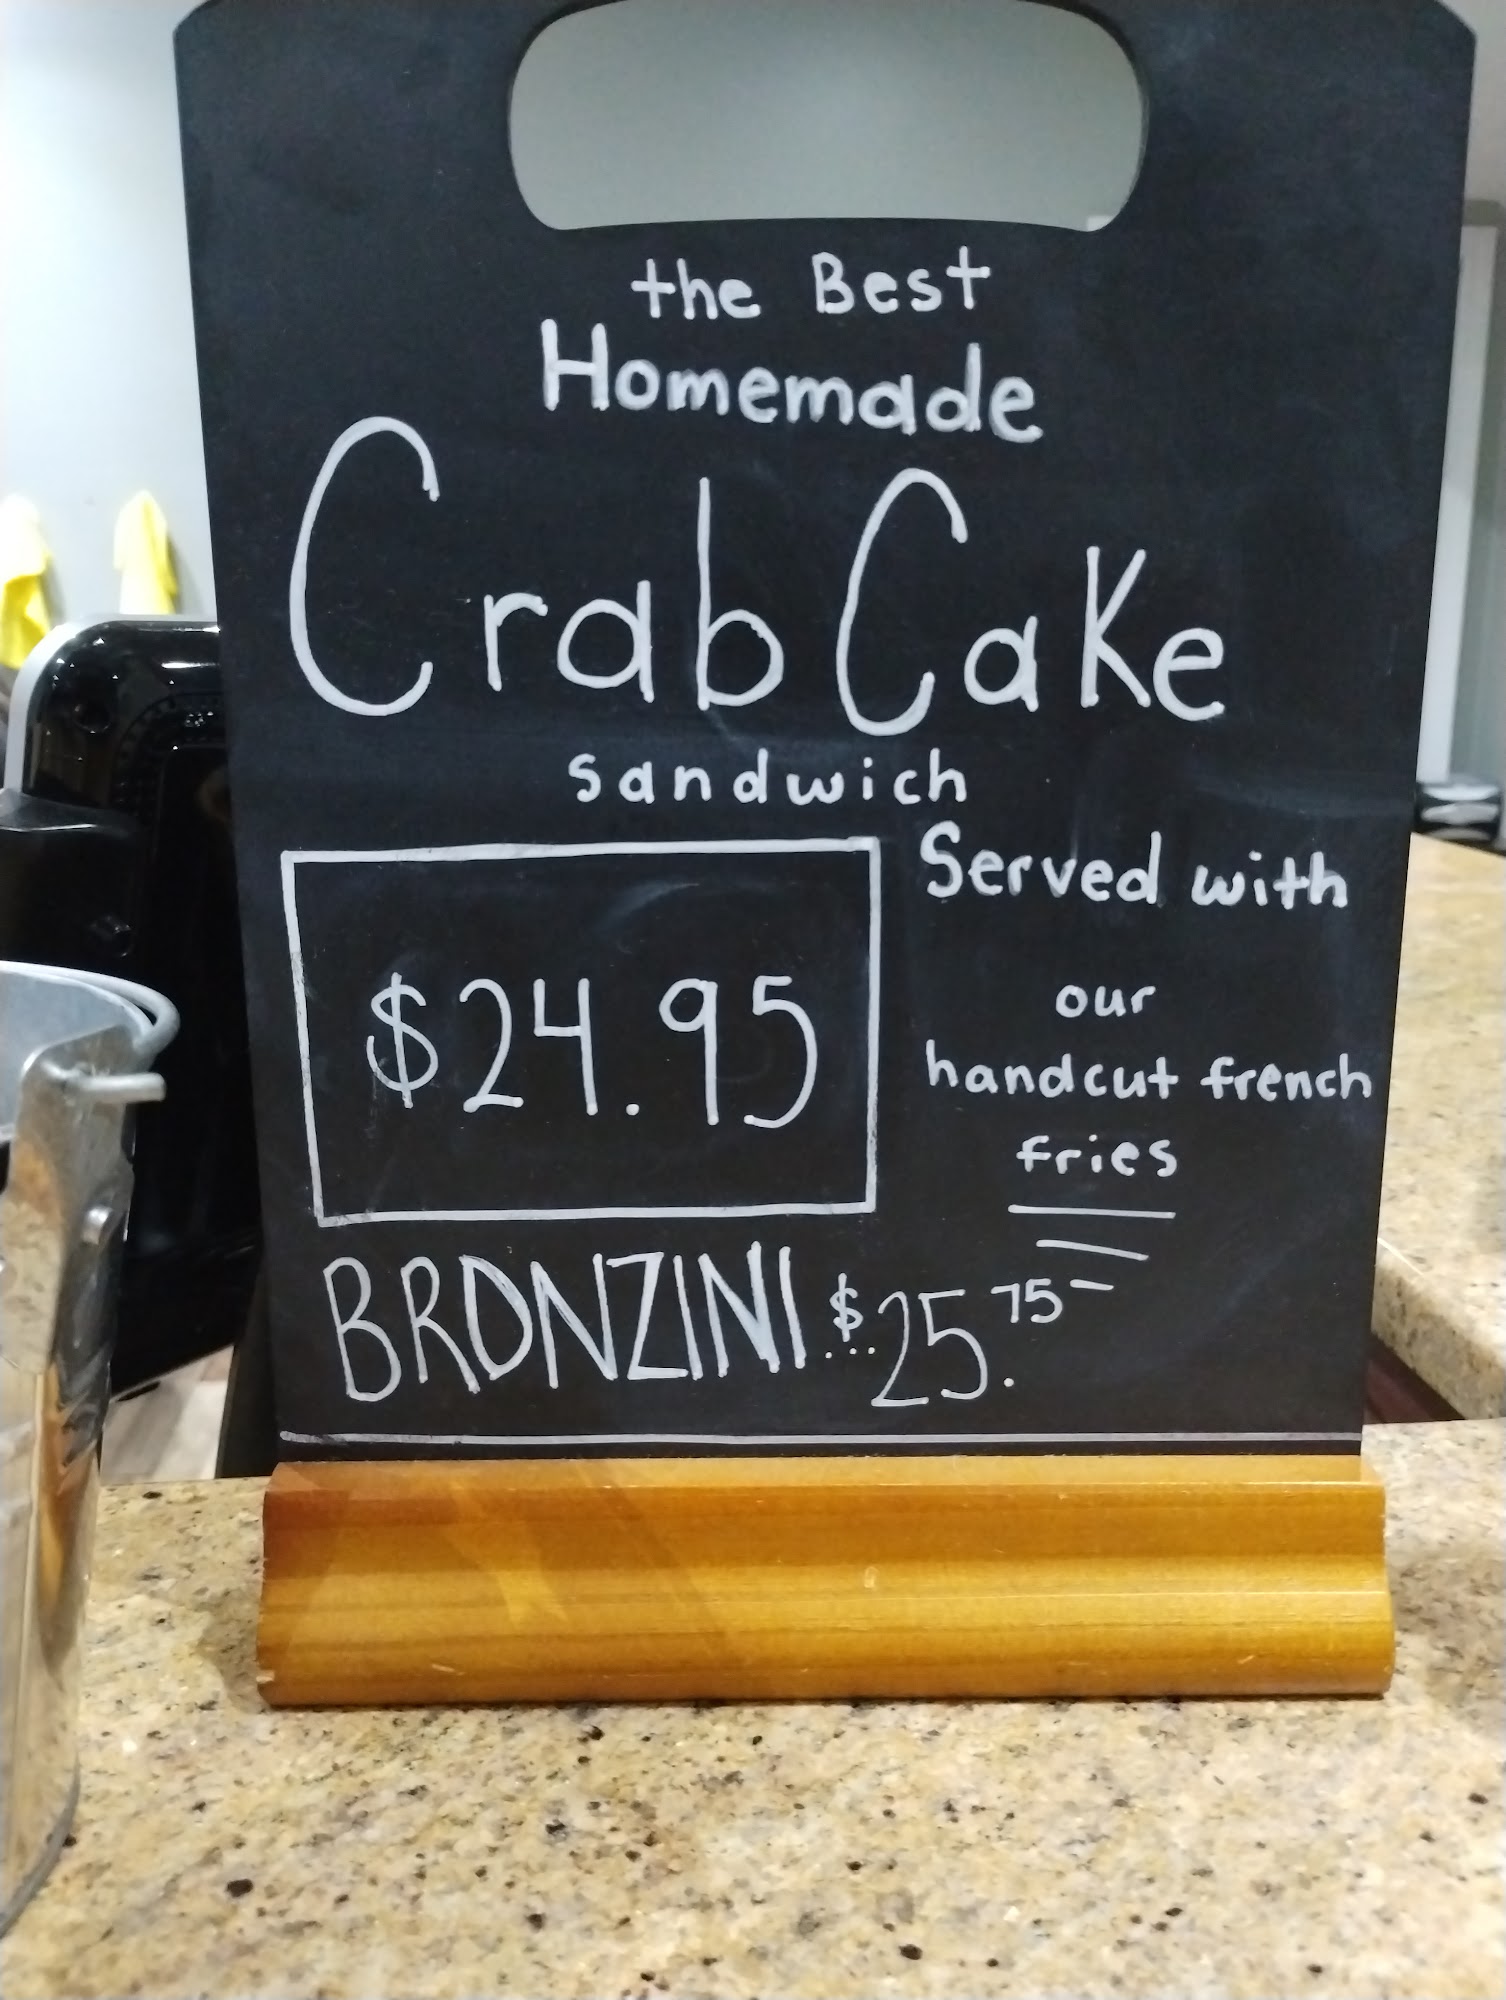 the Best
Homemade
Crab Cake
sandwich
$24.95
Served with
our
handcut french
fries
BRONZINI $25.75